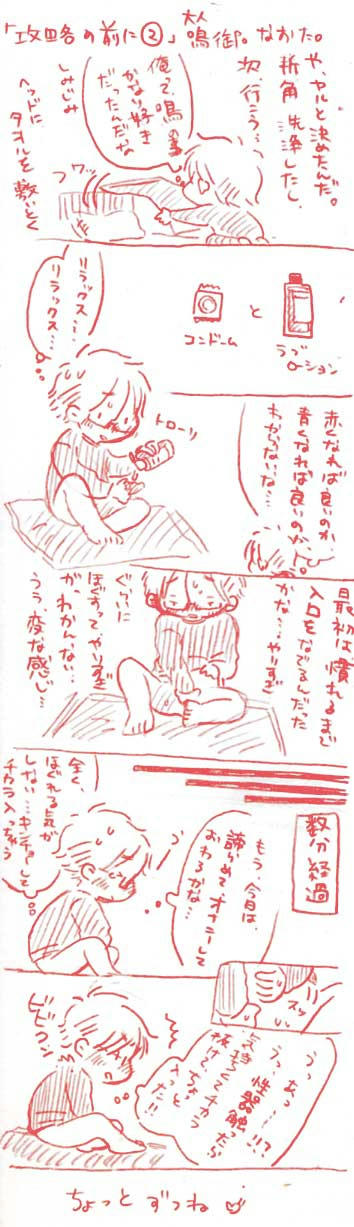 「攻略の前に②」大人鳴御。なかた。
や、ヤルと決めたんだ。
折角、洗浄したし、
次、行こう…
俺って、鳴の事
かなり好き
だったんだな
しみじみ
フワッ
ベッドに
タオルを敷いとく
ラブ
ローション
と
コンドーム
リラックス…
リラックス…
トローリ
赤くなれば良いのか、
青くなれば良いのか、
わからないな…
最初は慣れるまで
入口をなでるんだった
かな…やりすぎ
ぐらいに
ほぐすって、やりすぎ
が、わかんない…
うう、変な感じ…
数分経過
もう、今日は、
諦らめてオナニーして
おわるかな…
全く、
ほぐれる気が
しない…
チカラ入っちゃう
スッ
うっあっ…!!?
性器触ったら
気持ちくてチカラ
抜けて、ちょっと
入った!!
ビビクン
ちょっとずつね